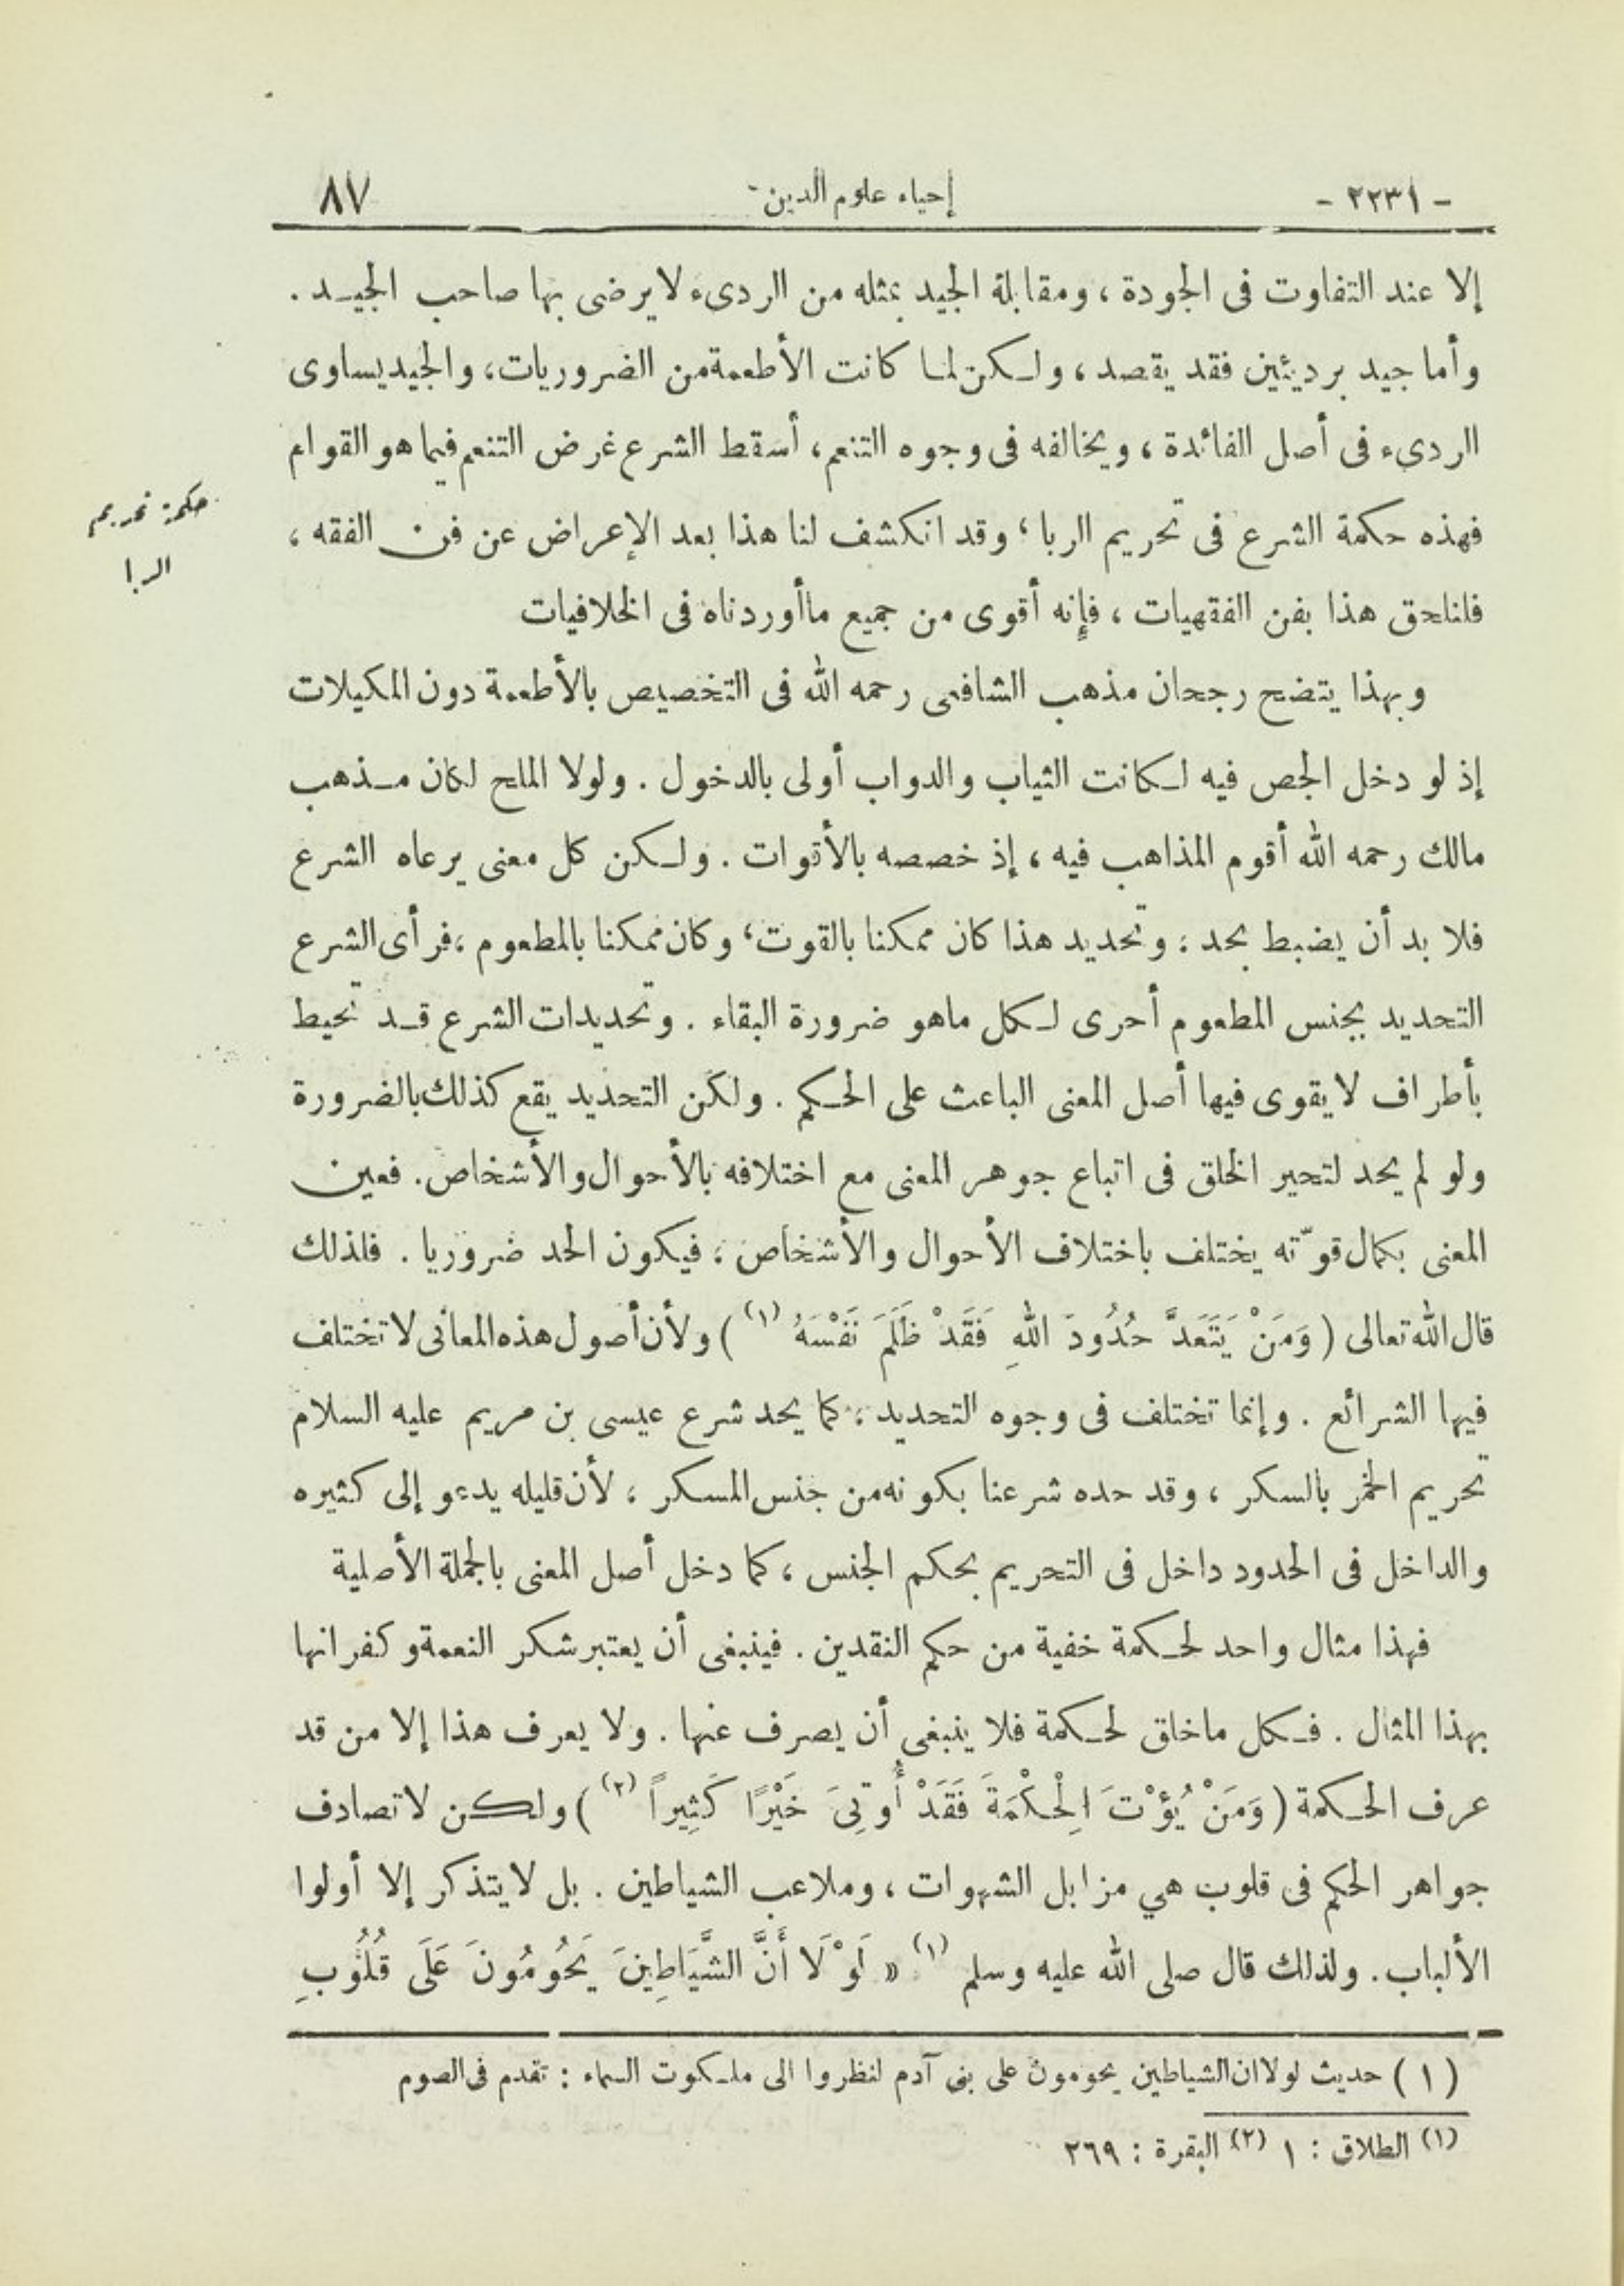 - ٢٢٣١ -
إحياء علوم الدين
٨٧
إلا عند التفاوت فى الجودة ، ومقابلة الجيد بمثله من الردىء لا يرضى بها صاحب الجيد .
وأما جيد برديئين فقد يقصد ، ولكن لما كانت الأطعمة من الضروريات ، والجيد يساوى
الردىء فى أصل الفائدة ، ويخالفه فى وجوه التنعم ، أسقط الشرع غرض التنعم فيما هو القوام
حكمة تحريم
الربا
فهذه حكمة الشرع فى تحريم الربا ، وقد انكشف لنا هذا بعد الإعراض عن فن الفقه ،
فلنلحق هذا بفن الفقهيات ، فإنه أقوى من جميع ما أوردناه فى الخلافيات
وبهذا يتضح رجحان مذهب الشافعى رحمه الله فى التخصيص بالأطعمة دون المكيلات
إذ لو دخل الجص فيه لكانت الثياب والدواب أولى بالدخول . ولولا الملح لكان مذهب
مالك رحمه الله أقوم المذاهب فيه ، إذ خصصه بالأقوات . ولكن كل معنى يرعاه الشرع
فلا بد أن يضبط بحد ، وتحديد هذا كان ممكنا بالقوت ، وكان ممكنا بالمطعوم ، فرأى الشرع
التحديد بجنس المطعوم أحرى لكل ماهو ضرورة البقاء . وتحديدات الشرع قد تحيط
بأطراف لا يقوى فيها أصل المعنى الباعث على الحكم . ولكن التحديد يقع كذلك بالضرورة
ولو لم يحد لتحير الخلق فى اتباع جوهر المعنى مع اختلافه بالأحوال والأشخاص . فعين
المعنى بكمال قوّته يختلف باختلاف الأحوال والأشخاص ، فيكون الحد ضروريا . فلذلك
قال الله تعالى ( وَمَنْ يَتَعَدَّ حُدُودَ اللهِ فَقَدْ ظَلَمَ نَفْسَهُ (١) ) ولأن أصول هذه المعانى لا تختلف
فيها الشرائع . وإنما تختلف فى وجوه التحديد ، كما يحد شرع عيسى بن مريم عليه السلام
تحريم الخمر بالسكر ، وقد حده شرعنا بكونه من جنس المسكر ، لأن قليله يدعو إلى كثيره
والداخل فى الحدود داخل فى التحريم بحكم الجنس ، كما دخل أصل المعنى بالجملة الأصلية
فهذا مثال واحد لحكمة خفية من حكم النقدين . فينبغى أن يعتبر شكر النعمة وكفرانها
بهذا المثال . فكل ماخلق لحكمة فلا ينبغى أن يصرف عنها . ولا يعرف هذا إلا من قد
عرف الحكمة ( وَمَنْ يُؤْتَ الْحِكْمَةَ فَقَدْ أُوتِىَ خَيْرًا كَثِيراً (٢) ) ولكن لا تصادف
جواهر الحكم فى قلوب هي مزابل الشهوات ، وملاعب الشياطين . بل لا يتذكر إلا أولوا
الألباب . ولذلك قال صلى الله عليه وسلم (١) « لَوْلَا أَنَّ الشَّيَاطِينَ يَحُومُونَ عَلَى قُلُوبِ
( ١ ) حديث لولا ان الشياطين يحومون على بنى آدم لنظروا الى ملكوت السماء : تقدم فى الصوم
(١) الطلاق : ١ (٢) البقرة : ٢٦٩